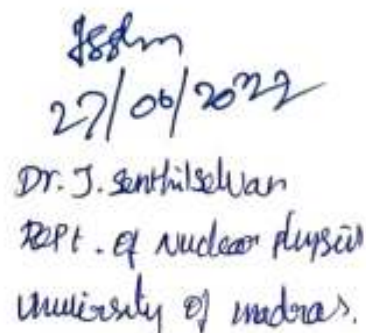 27/06/2022
Dr. J. Senthilselvan
Dept. of Nuclear physics
University of madras.